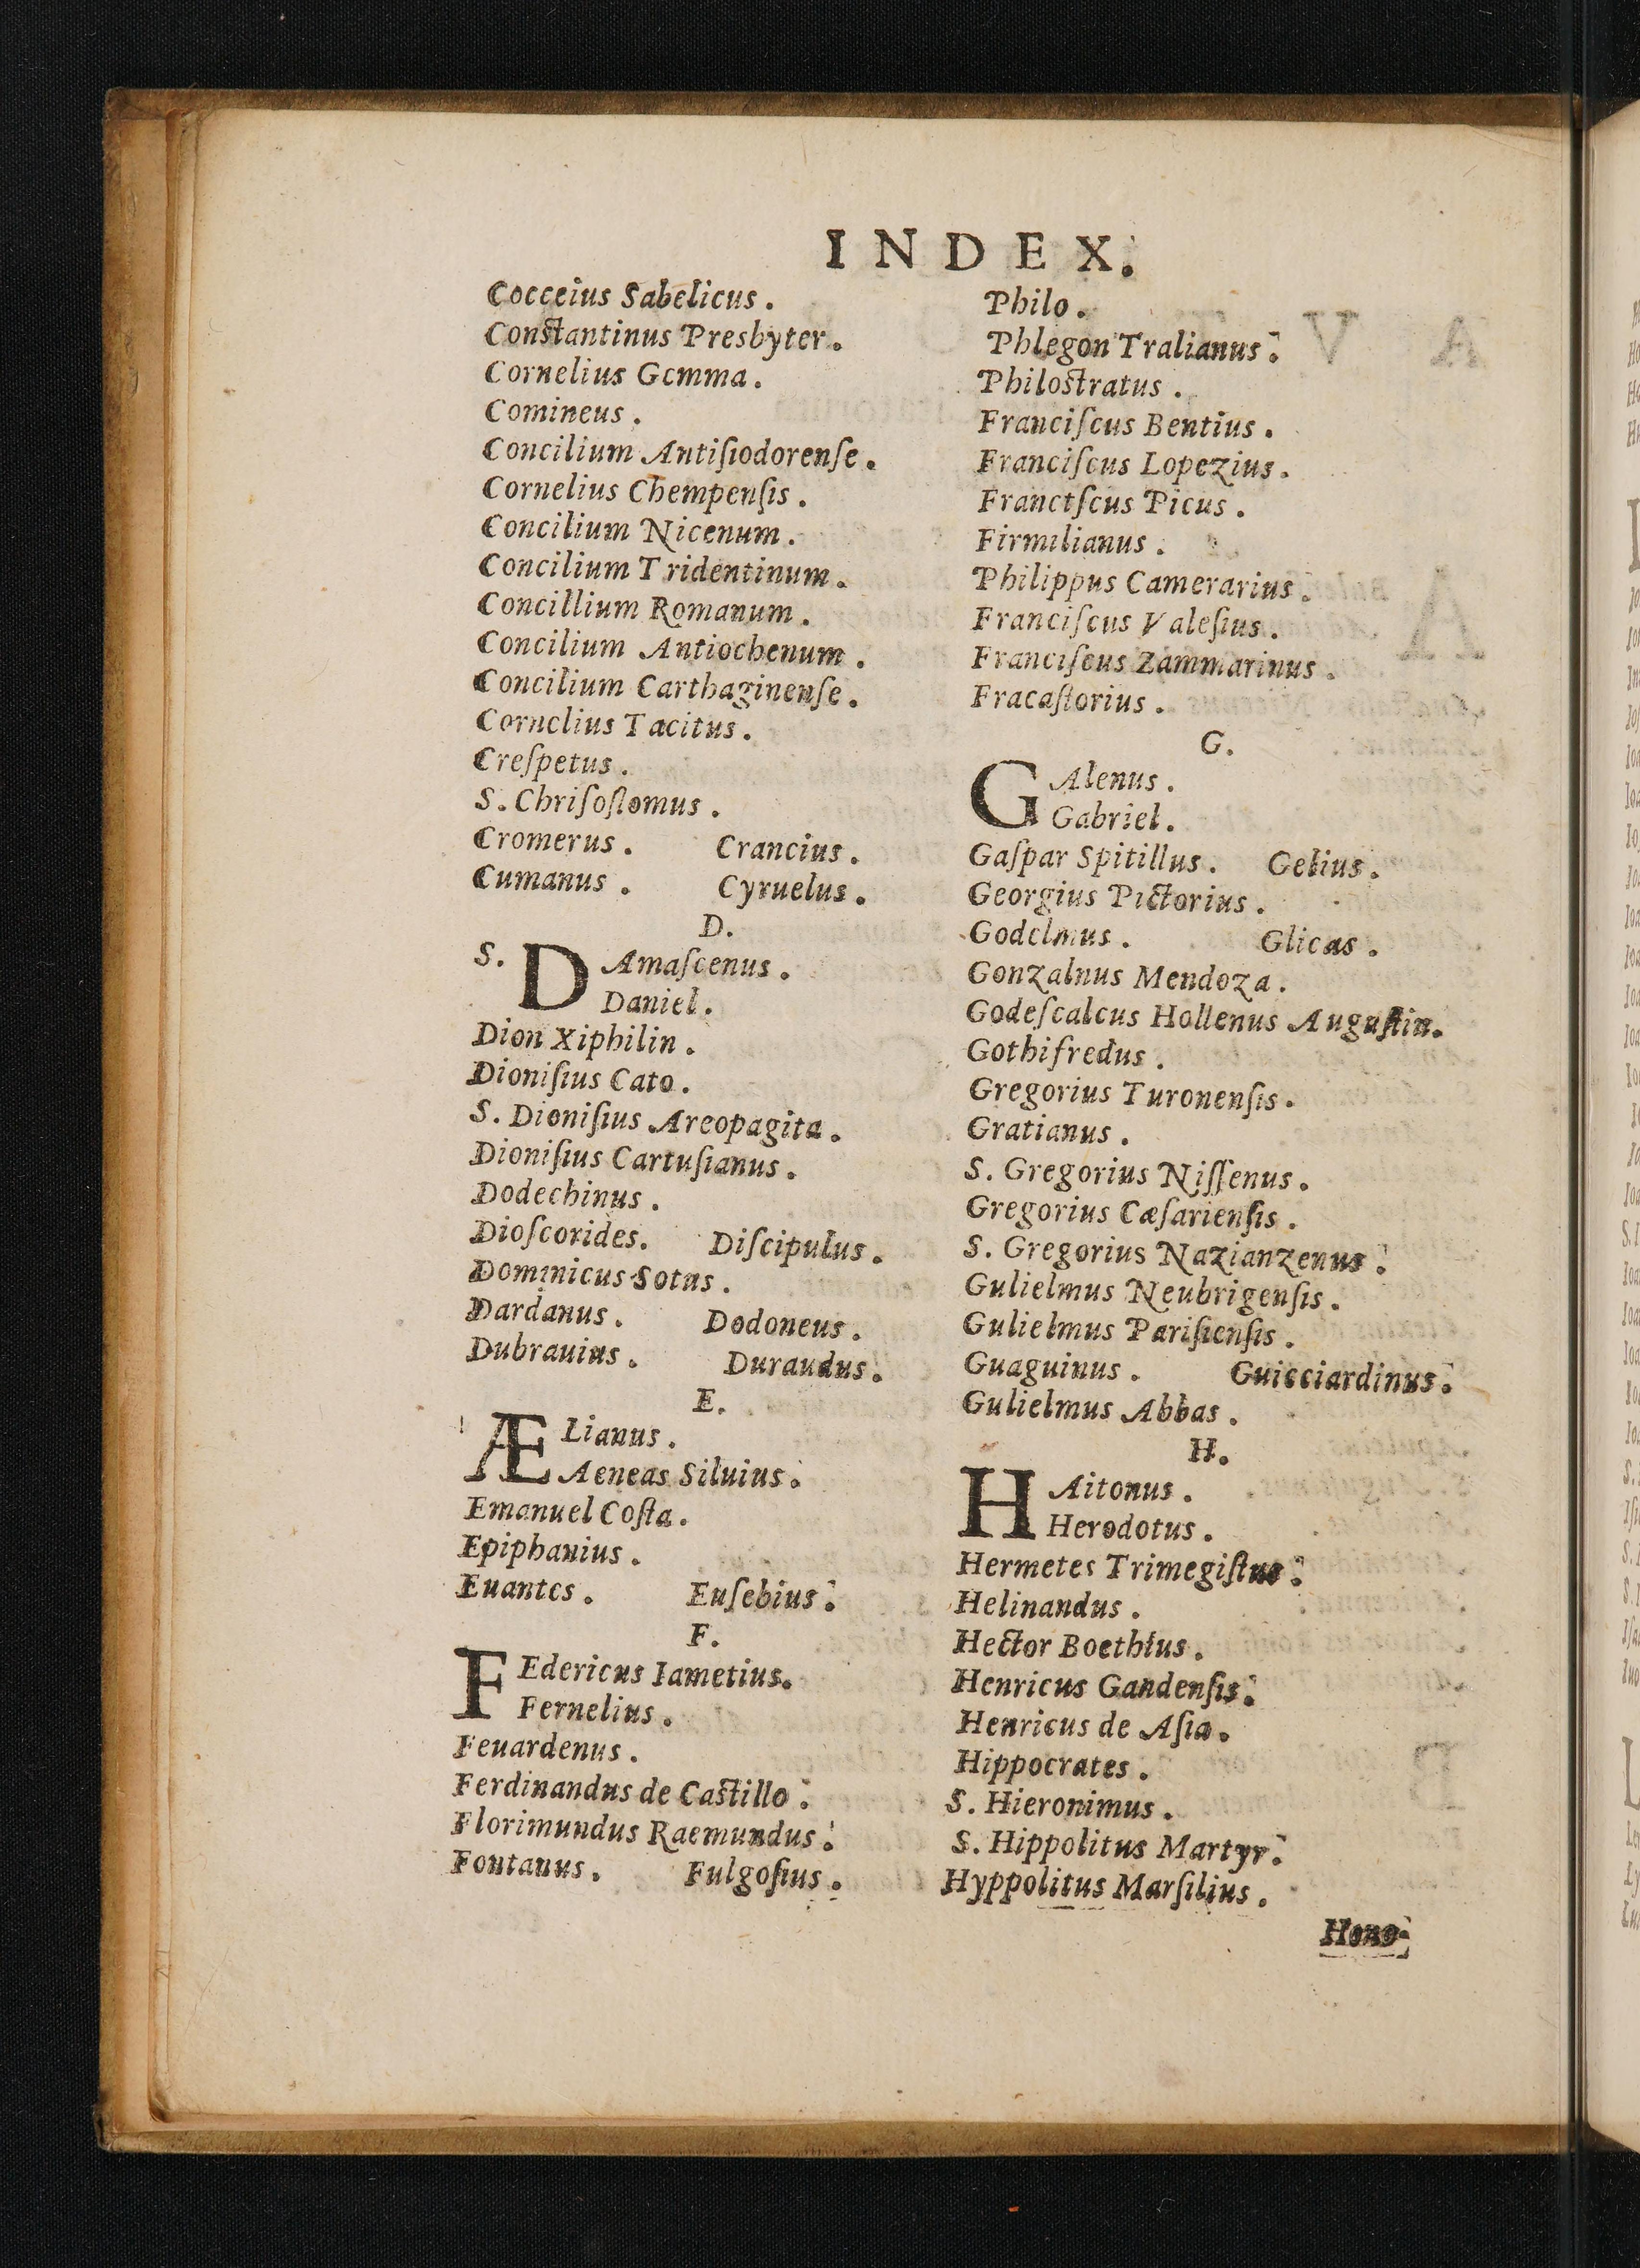 INDEX.
Cocceius Sabelicus.
Constantinus Presbyter.
Cornelius Gemma.
Comineus.
Concilium Antiſiodorenſe.
Cornelius Chempenſis.
Concilium Nicenum.
Concilium Tridentinum.
Concillium Romanum.
Concilium Antiochenum.
Concilium Carthaginenſe.
Cornelius Tacitus.
Creſpetus.
S. Chriſoſtomus.
Cromerus. Crancius.
Cumanus. Cyruelus.
D.
S. DAmaſcenus.
Daniel.
Dion Xiphilin.
Dioniſius Cato.
S. Dioniſius Areopagita.
Dioniſius Cartuſianus.
Dodechinus.
Dioſcorides. Diſcipulus.
Dominicus Sotus.
Dardanus. Dodoneus.
Dubrauius. Duraudus.
E.
ÆLianus.
Aeneas Siluius.
Emanuel Coſta.
Epiphanius.
Euantes. Euſebius.
F.
FEdericus Iametius.
Fernelius.
Feuardenus.
Ferdinandus de Castillo.
Florimundus Raemundus.
Fontanus. Fulgoſius.
Philo.
Phlegon Tralianus.
Philostratus.
Franciſcus Bentius.
Franciſcus Lopezius.
Franctſcus Picus.
Firmilianus.
Philippus Camerarius.
Franciſcus Valeſius.
Franciſcus Zammarinus.
Fracaſtorius.
G.
GAlenus.
Gabriel.
Gaſpar Spitillus. Gelius.
Georgius Pictorius.
Godelmus. Glicas.
Gonzalnus Mendoza.
Godeſcalcus Hollenus Auguſtin.
Gothifredus.
Gregorius Turonenſis.
Gratianus.
S. Gregorius Niſſenus.
Gregorius Cæſarienſis.
S. Gregorius Nazianzenus.
Gulielmus Neubrigenſis.
Gulielmus Pariſienſis.
Guaguinus. Guicciardinus.
Gulielmus Abbas.
H.
HAitonus.
Herodotus.
Hermetes Trimegiſtus.
Helinandus.
Hector Boethius.
Henricus Gandenſis.
Henricus de Aſia.
Hippocrates.
S. Hieronimus.
S. Hippolitus Martyr.
Hyppolitus Marſilius.
Hono-